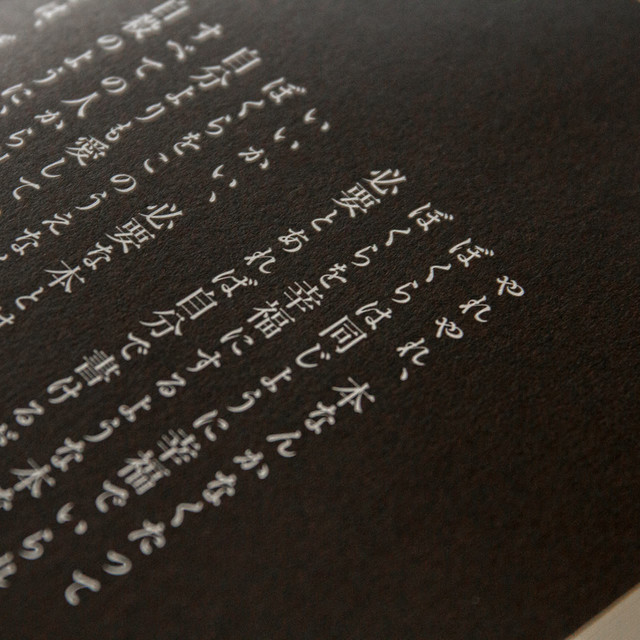 やれやれ、本なんかなくたって
ぼくらは同じように幸福でいられ
ぼくらを幸福にするような本な
必要とあれば自分で書ける
いいかい、必要な本とは
このうえな
自分よりも愛して
すべての人から
自殺のように